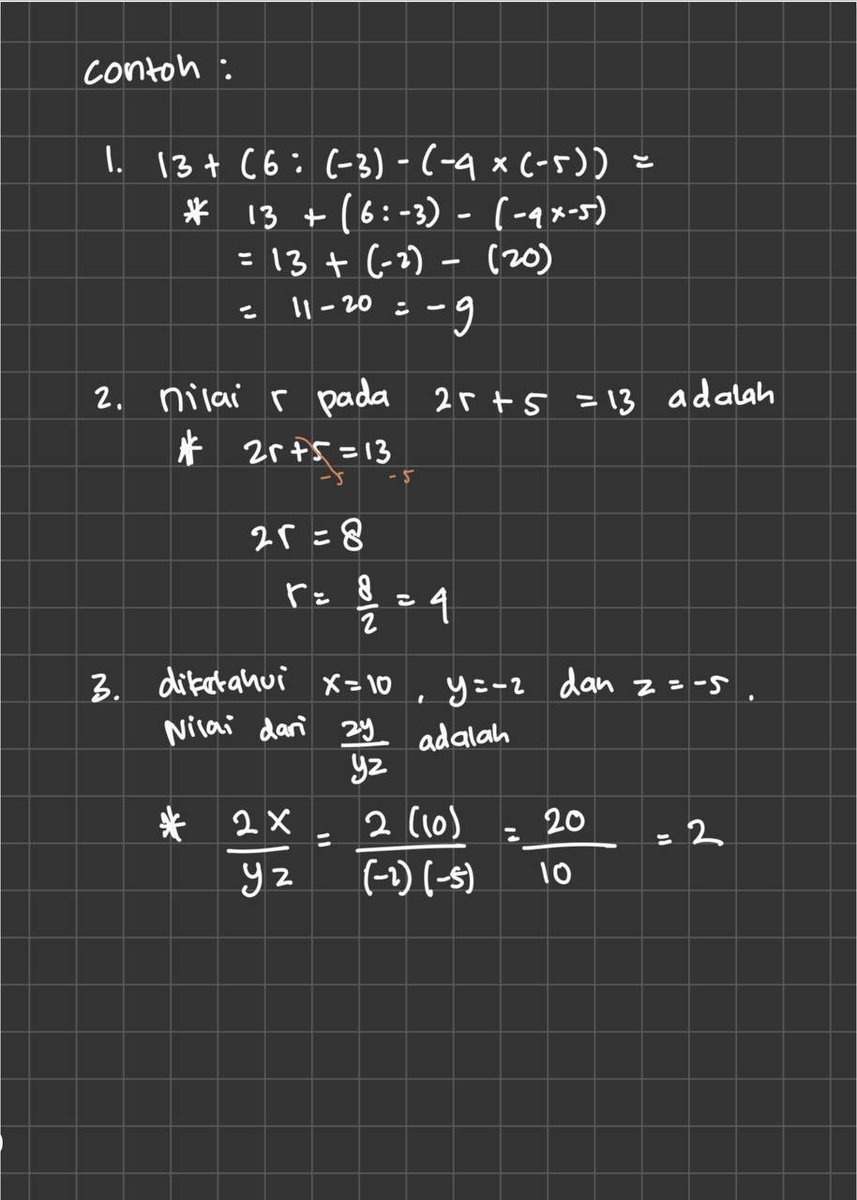 contoh :
1. 13 + (6 : (-3) - (-4 x (-5)) =
* 13 + (6 : -3) - (-4 x -5)
= 13 + (-2) - (20)
= 11 - 20 = -9
2. nilai r pada 2r + 5 = 13 adalah
* 2r + 5 = 13
-5 -5
2r = 8
r = 8/2 = 4
3. diketahui x = 10 , y = -2 dan z = -5 .
Nilai dari 2y/yz adalah
* 2x/yz = 2 (10)/(-2) (-5) = 20/10 = 2